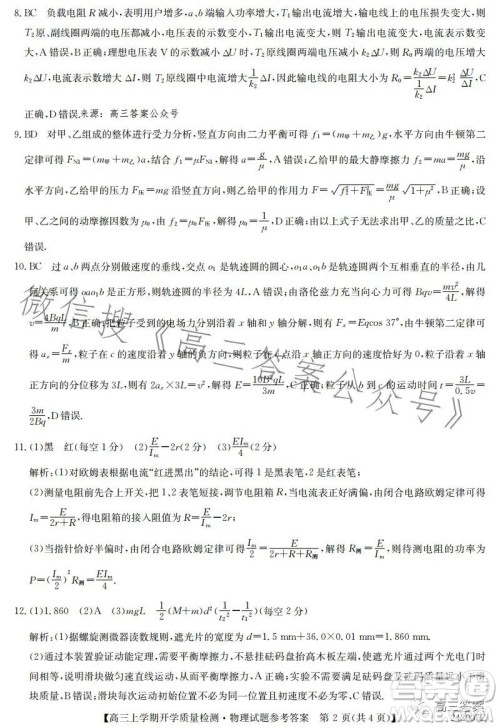 8. BC 负载电阻 R 减小,表明用户增多,a、b 端输入功率增大,T₁ 输出电流增大,输电线上的电压损失变大,则
T₂ 原、副线圈两端的电压都减小,电压表示数变小,T₂ 输出电流变大,T₂ 原线圈电流变大,电流表示数变
大,A 错误,B 正确;理想电压表 V 的示数减小 ΔU 时,T₂ 原线圈两端电压减小 k₂ΔU,则 R₀ 两端的电压增大
k₂ΔU,电流表示数增大 ΔI,则 T₂ 原线圈中电流增大 1/k₂ ΔI,因此输电线的电阻大小为 R₀ = k₂ΔU/(1/k₂ ΔI) = k₂² ΔU/ΔI,C
正确,D 错误.来源:高三答案公众号
9. BD 对甲、乙组成的整体进行受力分析,竖直方向由二力平衡可得 f₁=(m甲+m乙)g,水平方向由牛顿第二
定律可得 F_N1=(m甲+m乙)a,结合 f₁=μF_N1,解得 a=g/μ,A 错误;乙给甲的最大静摩擦力 f₂=ma=mg/μ,沿
水平方向,乙给甲的压力 F压=mg 沿竖直方向,则乙给甲的作用力 F=√(f₂²+F压²)=mg/μ √(1+μ²),B 正确;设
甲、乙之间的动摩擦因数为 μ₀,由 f₂=μ₀F压,解得 μ₀=1/μ,D 正确;由以上式子无法求出甲、乙的质量之比,C
错误.
10. BC 过 a、b 两点分别做速度的垂线,交点 o₁ 是轨迹圆的圆心,o₁a、o₁b 是轨迹圆两个互相垂直的半径,由几
何关系可得 oao₁b 是正方形,则轨迹圆的半径为 4L,A 错误;由洛伦兹力充当向心力可得 Bqv=mv²/4L,解得
v=4BqL/m,B 正确;把电场力分别沿着 x 轴和 y 轴分解,则有 Fₓ=Eqcos 37°,由牛顿第二定律可
得 aₓ=Fₓ/m,粒子在 c 的速度沿着 y 轴的负方向,则粒子在 c 点沿 x 轴正方向的速度恰好为 0,粒子沿 x 轴正
方向的分位移为 3L,则有 2aₓ×3L=v²,解得 E=10B²qL/3m,C 正确;粒子从 b 到 c 的运动时间 t=3L/0.5v=
3m/2Bq,D 错误.
11. (1)黑 红(每空 1 分) (2)E/Iₘ−2r(2 分) (3)EIₘ/4(2 分)
解析:(1)对欧姆表根据电流“红进黑出”的结论,可得 1 是黑表笔,2 是红表笔;
(2)测量电阻前先合上开关,把 1、2 表笔短接,调节电阻箱,使电流表满偏,由闭合电路欧姆定律可得
Iₘ=E/(2r+R),得电阻箱的接入阻值为 R=E/Iₘ−2r;
(3)当指针恰好半偏时,由闭合电路欧姆定律可得 Iₘ/2=E/(2r+R+R测),解得 R测=E/Iₘ,则待测元件的功率为
P=(Iₘ/2)²R测=EIₘ/4.
12. (1)1.860 (2)A (3)mgL 1/2(M+m)d²(1/t₂²−1/t₁²)(每空 2 分)
解析:(1)据螺旋测微器读数规则,遮光片的宽度为 d=1.5 mm+36.0×0.01 mm=1.860 mm.
(2)通过本装置验证动能定理,需要平衡摩擦力,不悬挂砝码盘抬高木板右端,当小车能够沿着木板匀速运
【高三上学期开学质量检测·物理试题参考答案 第 2 页(共 4 页)】
微信搜《高三答案公众号》